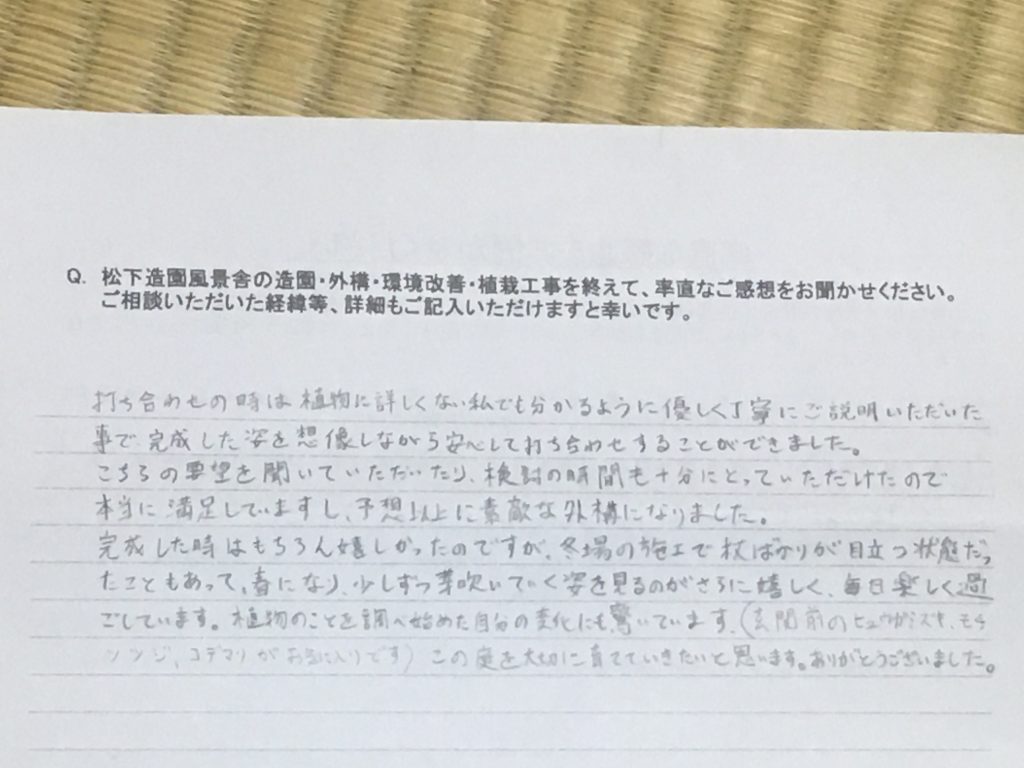 Q. 松下造園風景舎の造園・外構・環境改善・植栽工事を終えて、率直なご感想をお聞かせください。
ご相談いただいた経緯等、詳細もご記入いただけますと幸いです。
打ち合わせの時は植物に詳しくない私でも分かるように優しく丁寧にご説明いただいた
事で、完成した姿を想像しながら安心して打ち合わせすることができました。
こちらの要望を聞いていただいたり、検討の時間も十分にとっていただけたので
本当に満足していますし、予想以上に素敵な外構になりました。
完成した時はもちろん嬉しかったのですが、冬場の施工で枝ばかりが目立つ状態だっ
たこともあって、春になり、少しずつ芽吹いていく姿を見るのがさらに嬉しく、毎日楽しく過
ごしています。植物のことを調べ始めた自分の変化にも驚いています。(玄関前のヒュウガミズキ、モチ
ツツジ、コデマリがお気に入りです) この庭を大切に育てていきたいと思います。ありがとうございました。